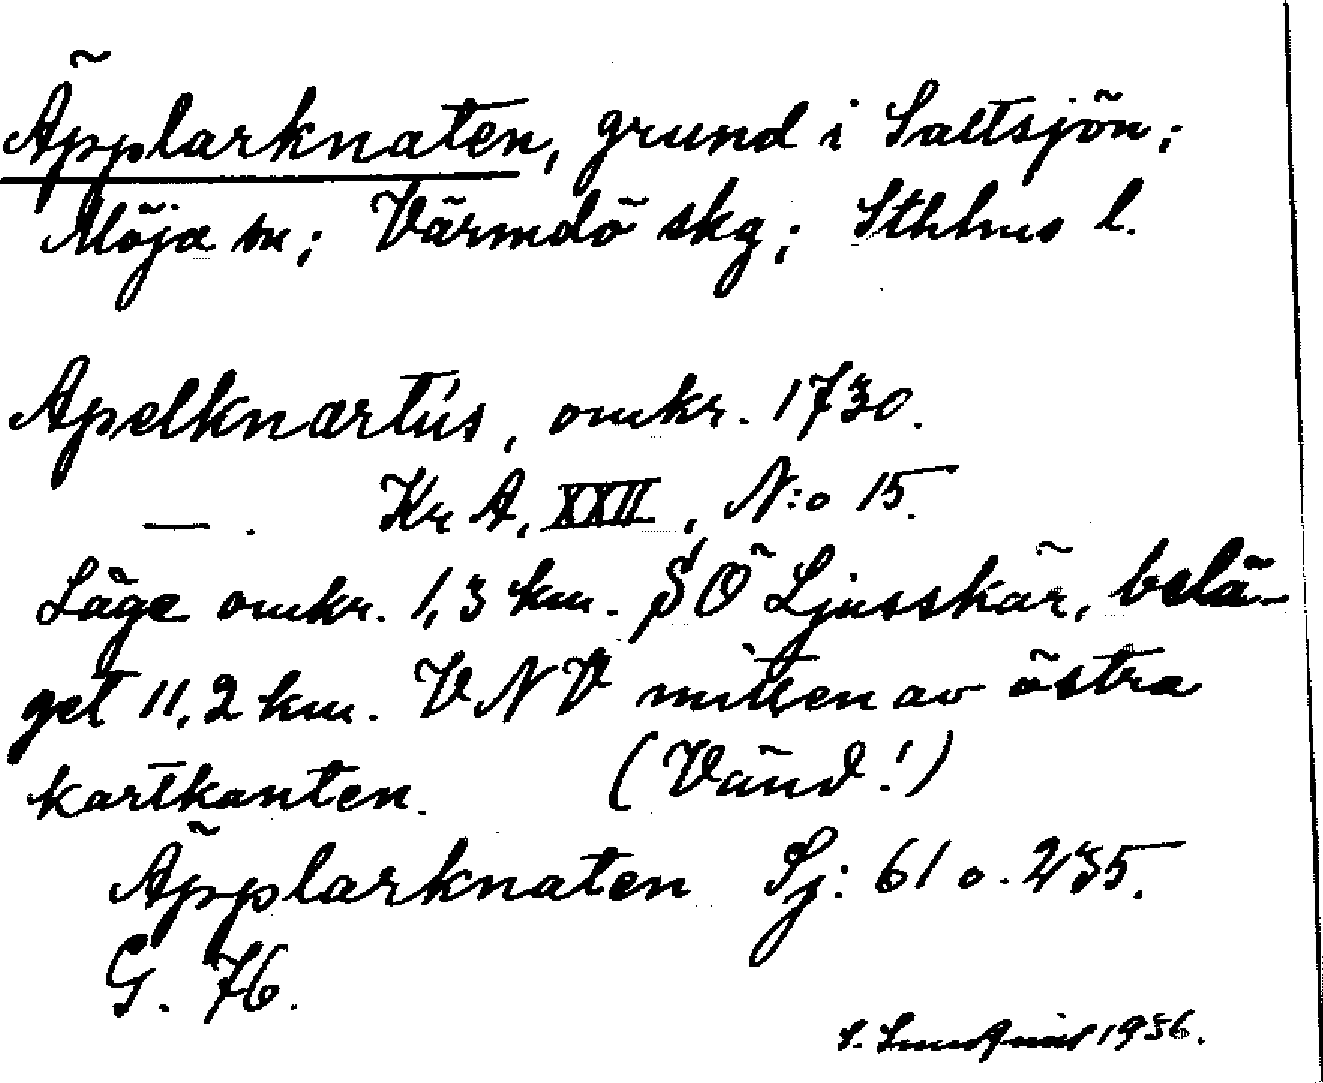 Äpplarknaten, grund i Saltsjön;
Möja sn; Värmdö skg; Sthlms l.
Apelknartus, omkr. 1730.
— . Kr A, XXII, N:o 15.
Läge omkr. 1,3 km. SÖ Ljusskär, belä-
get 11,2 km. VNV mitten av östra
kartkanten. (Vänd!)
Äpplarknaten Sj: 61 o. 235.
G. 76.
S. Lundquist 1936.